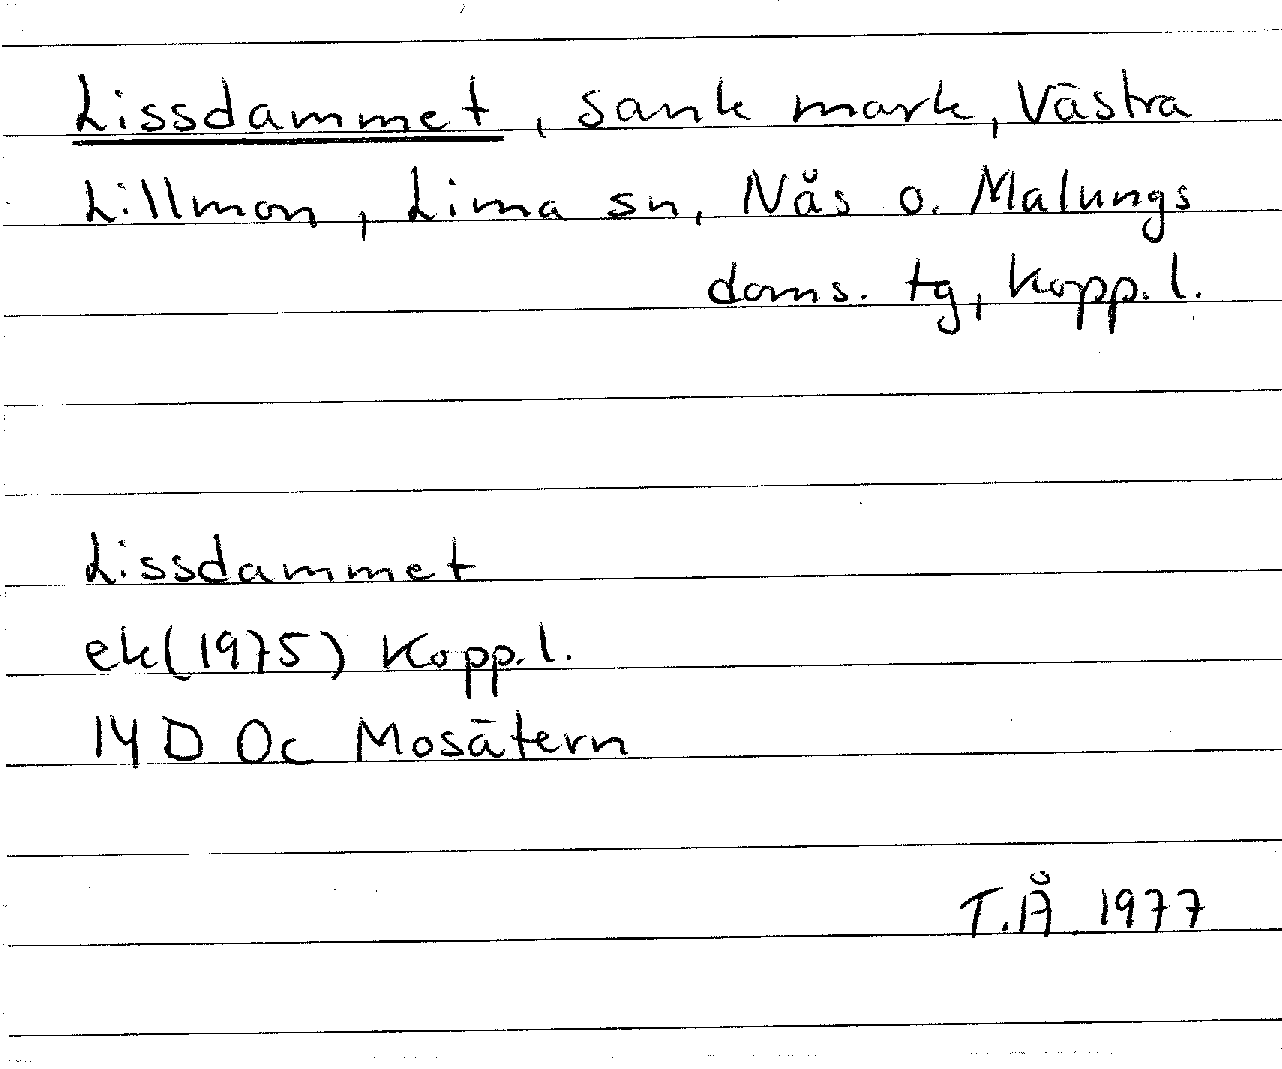 Lissdammet, sank mark, Västra
Lillmon, Lima sn, Nås o. Malungs
doms. tg, Kopp. l.
Lissdammet
ek(1975) Kopp. l.
14 D 0c Mosätern
T.Å 1977